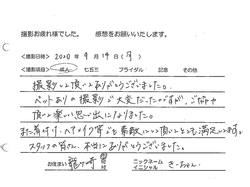 撮影お疲れ様でした。　感想をお願いいたします。
<撮影日時> 2020年 9月 14日(月)
<撮影項目> 成人 七五三 ブライダル 記念 その他
撮影して頂いてありがとうございました。
ペットありの撮影で大変だったのですが、
頂いて楽しい思い出になりました。
また着付け・ヘアメイク等も素敵にして頂いてとても満足しています。
スタッフの皆さん、本当にありがとうございました。
お住まい 龍ヶ崎 市 ニックネーム イニシャル きーちゃん